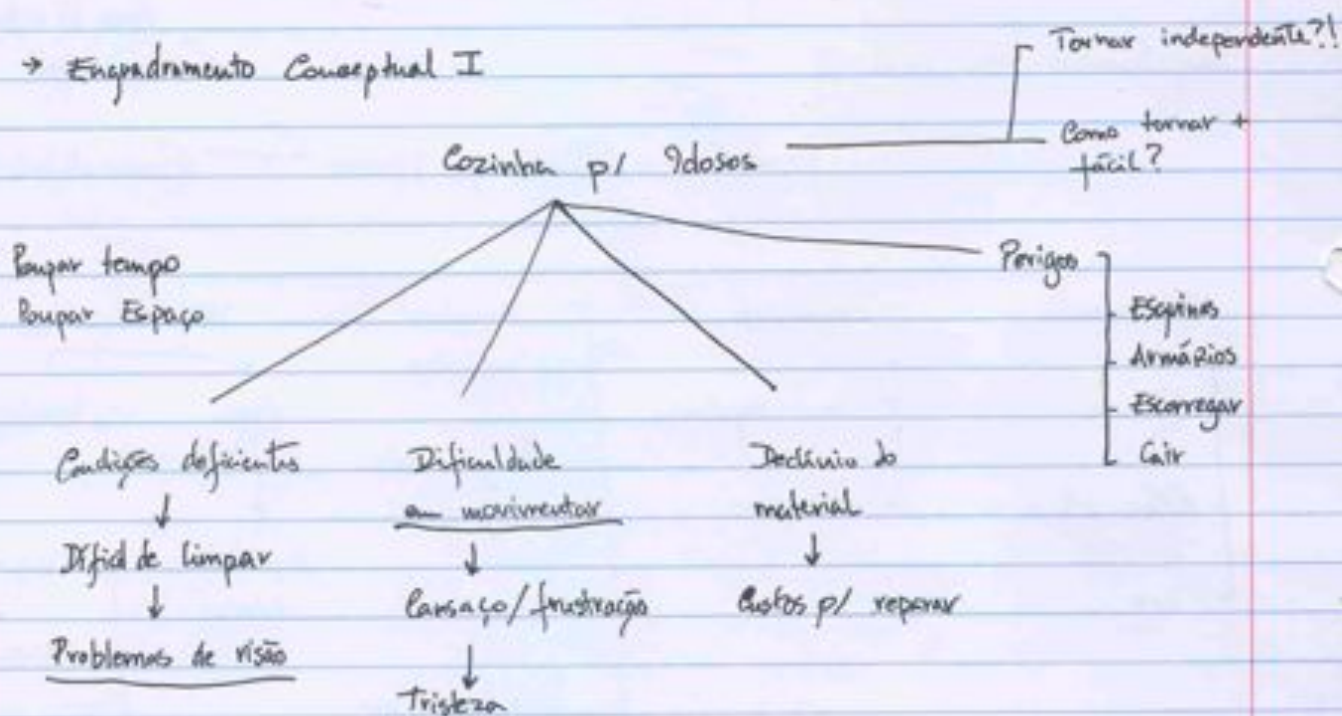 → Enquadramento Conceptual I
Tornar independente?!
Como tornar +
fácil?
Cozinha p/ Idosos
Poupar tempo
Poupar Espaço
Perigos
Esquinas
Armários
Escorregar
Cair
Condições deficientes
↓
Difícil de limpar
↓
Problemas de visão
Dificuldade
em movimentar
↓
Cansaço/frustração
↓
Tristeza
Declínio do
material
↓
Custos p/ reparar